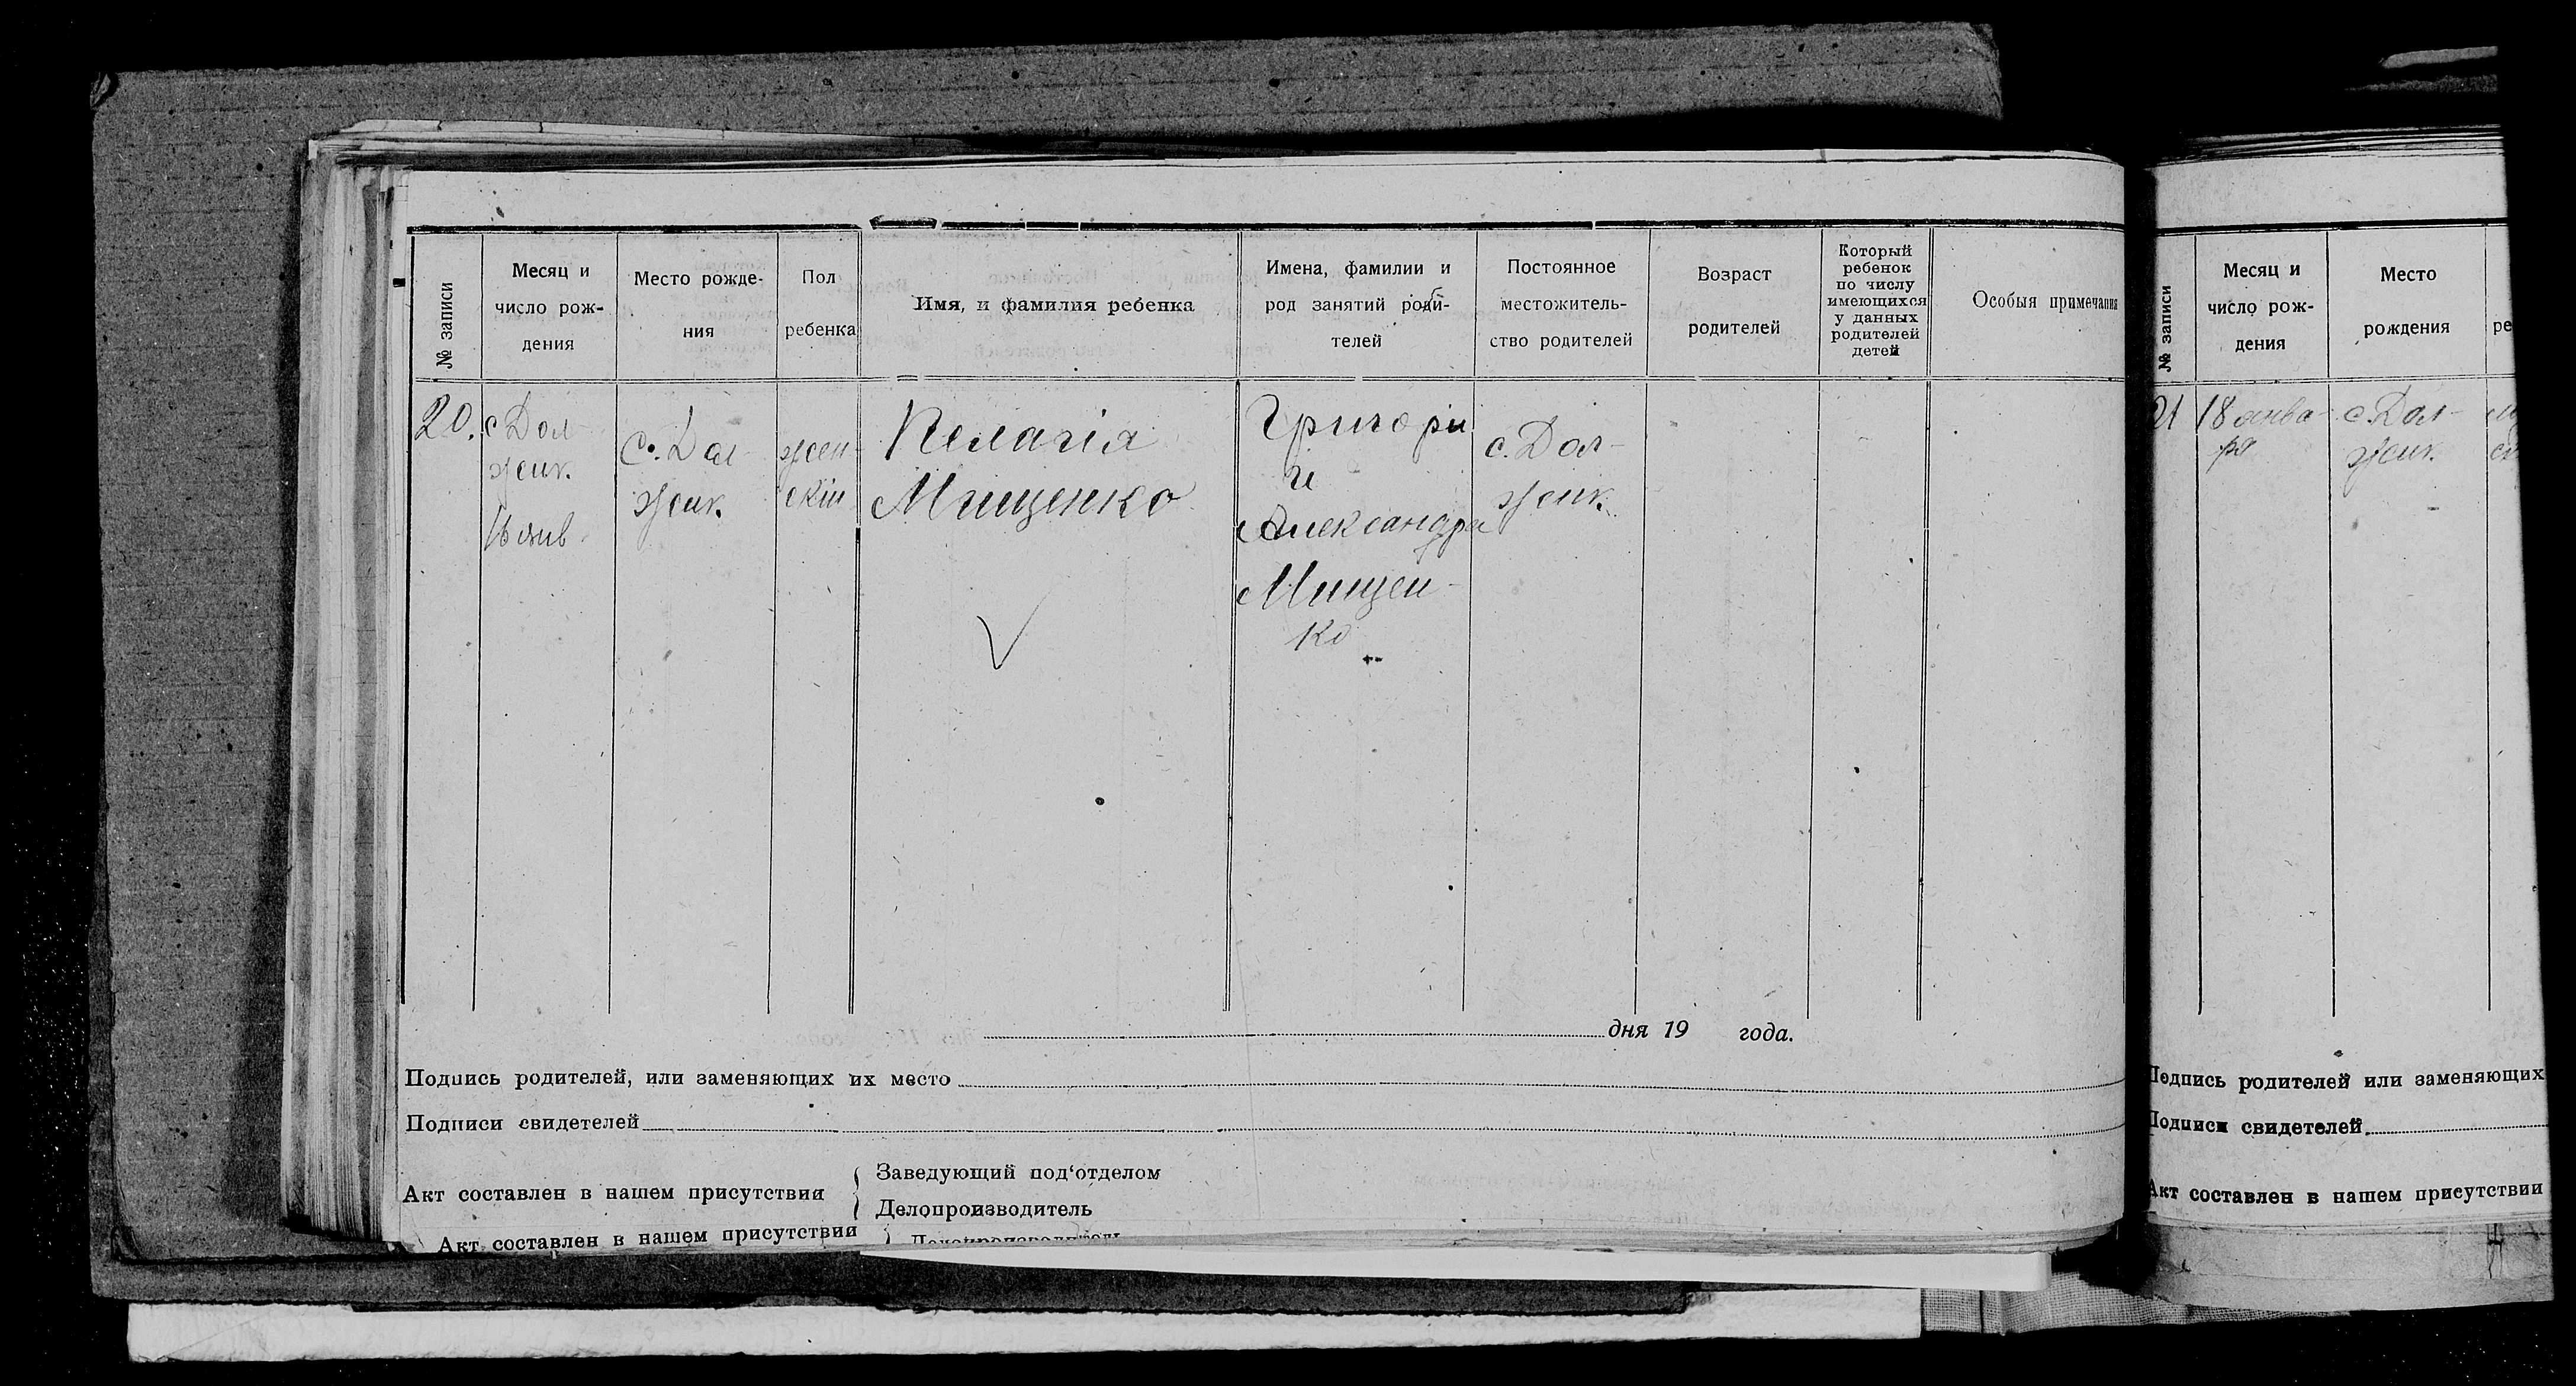 № записи
Месяц и
число рож-
дения
Место рожде-
ния
Пол
ребенка
Имя, и фамилия ребенка
Имена, фамилии и
род занятий роди-
телей
Постоянное
местожитель-
ство родителей
Возраст
родителей
Который
ребенок
по числу
имеющихся
у данных
родителей
детей
Особыя примечания
20.
с Дол-
жик.
16 янв
С. Дол-
жик.
жен-
скій
Пелагія
Мищенко
Григорій
и
Александра
Мищен-
ко
с. Дол-
жик.
дня 19 года.
Подпись родителей, или заменяющих их место
Подписи свидетелей
Акт составлен в нашем присутствии
Заведующий под‘отделом
Делопроизводитель
Акт составлен в нашем присутствии
Делопроизводитель
№ записи
Месяц и
число рож-
дения
Место
рождения
ре
21
18 янва-
ря
с. Дол-
жик.
Подпись родителей или заменяющих
Подписи свидетелей
Акт составлен в нашем присутствии